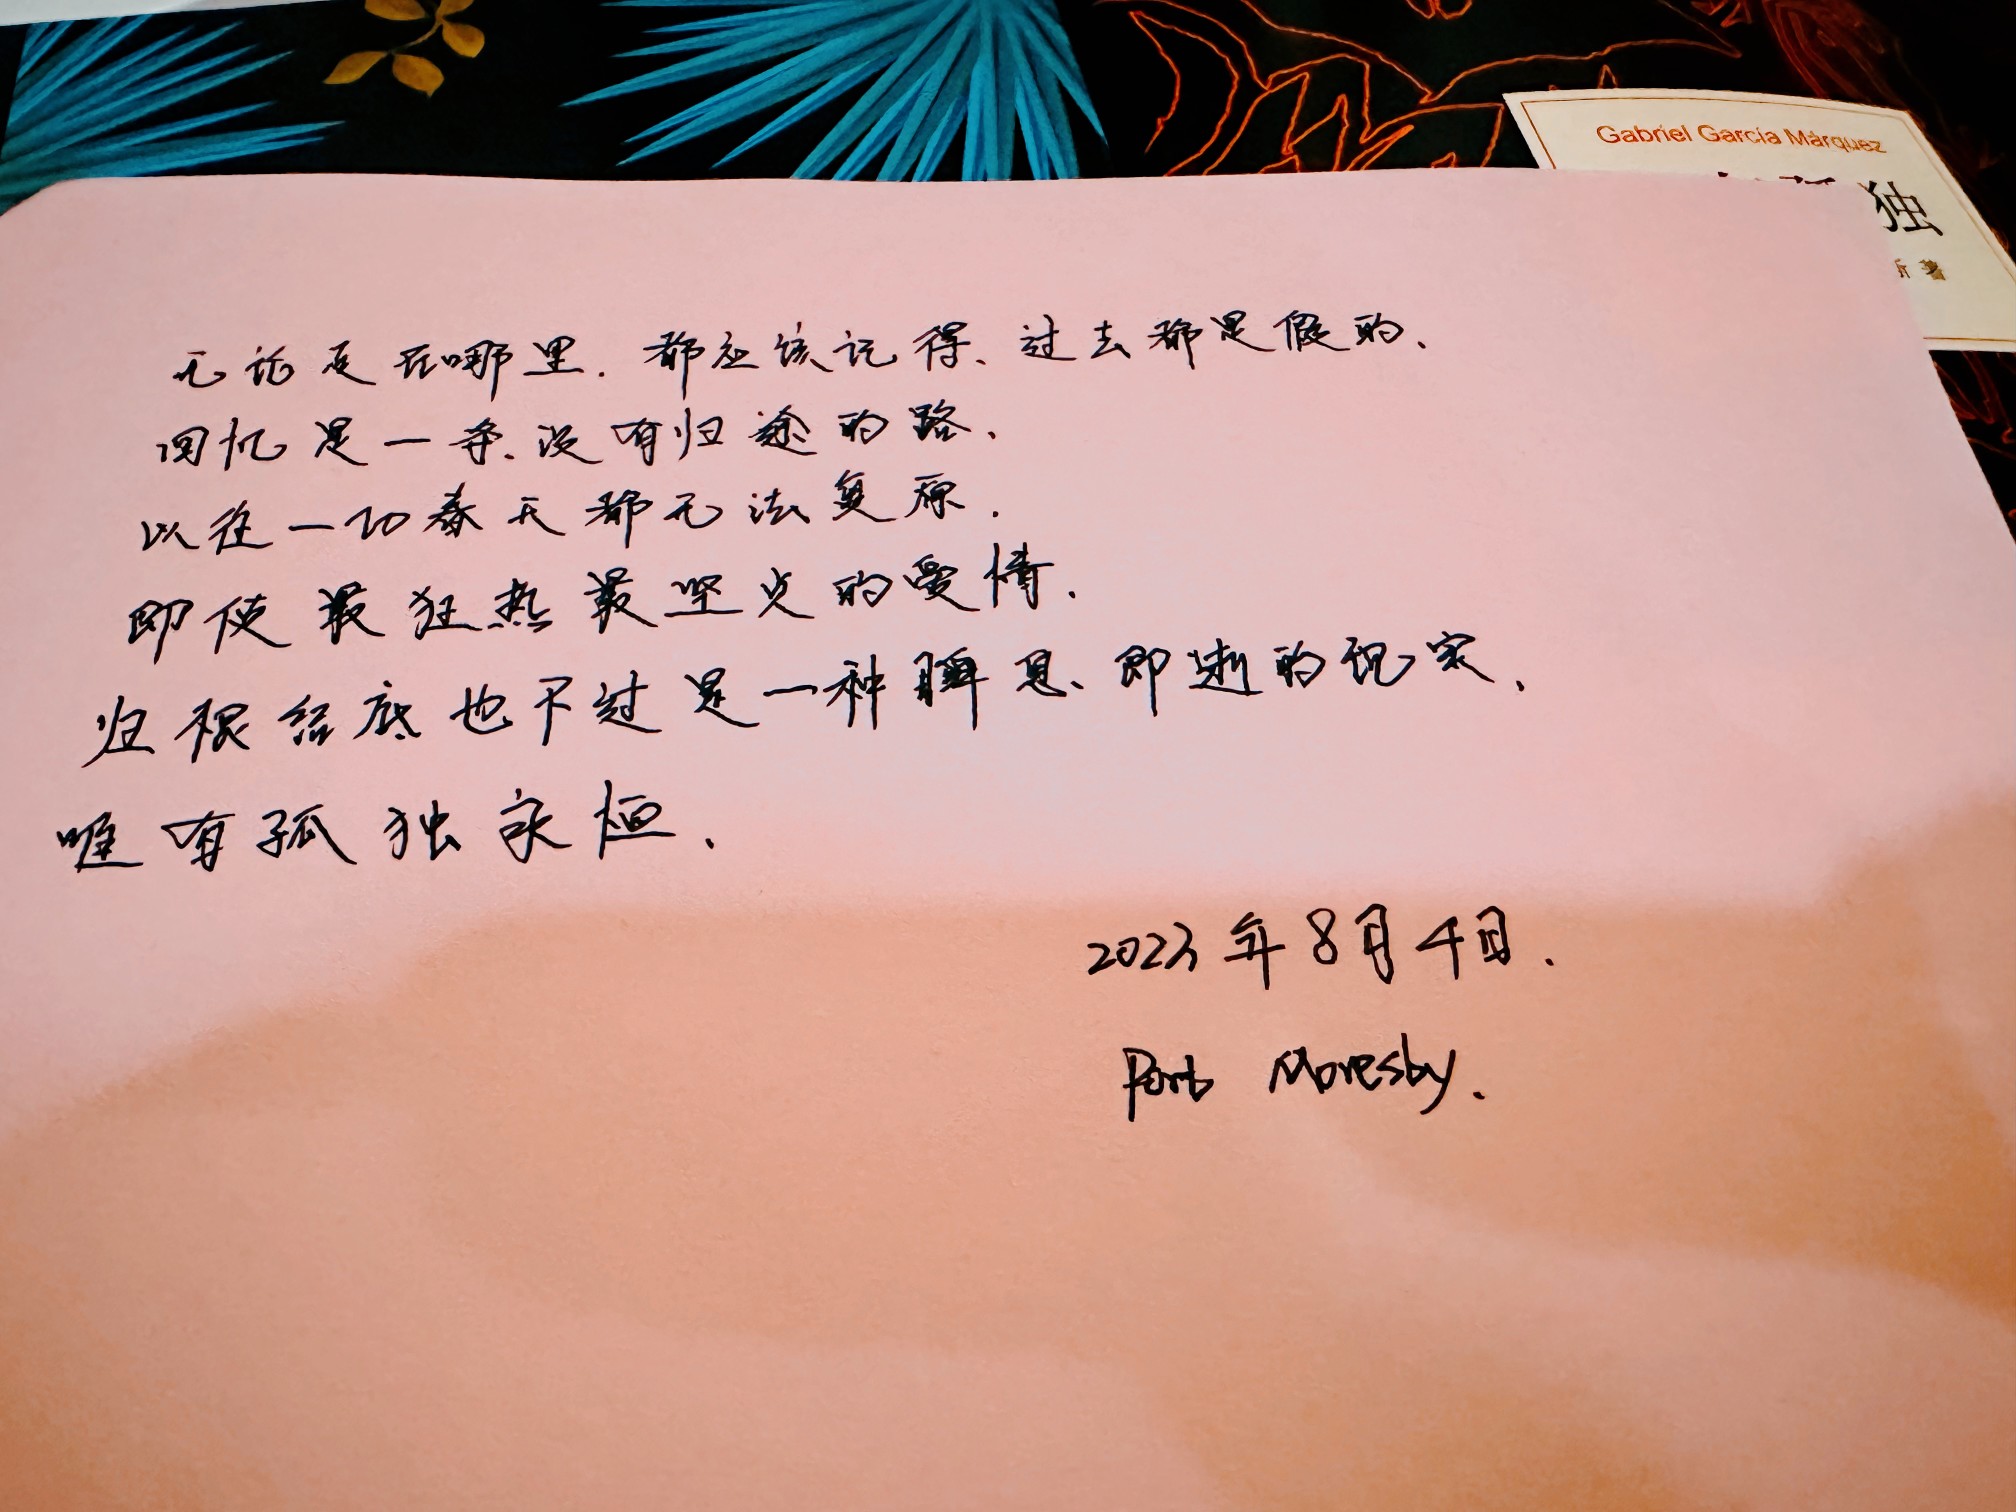 Gabriel García Márquez
独
著
无论走在哪里.都应该记得、过去都是假的、
回忆是一条、没有归途的路、
以往一切春天都无法复原.
即使最狂热最坚贞的爱情.
归根结底也不过是一种瞬息、即逝的现实、
唯有孤独永恒、
2023年8月4日.
Port Moresby.